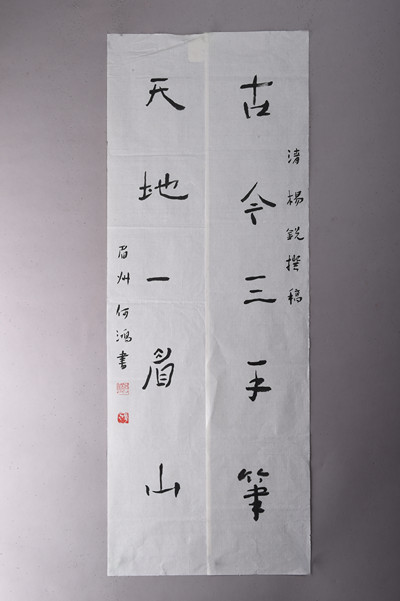 清杨锐撰稿
古今三手筆
天地一眉山
眉州何鴻書